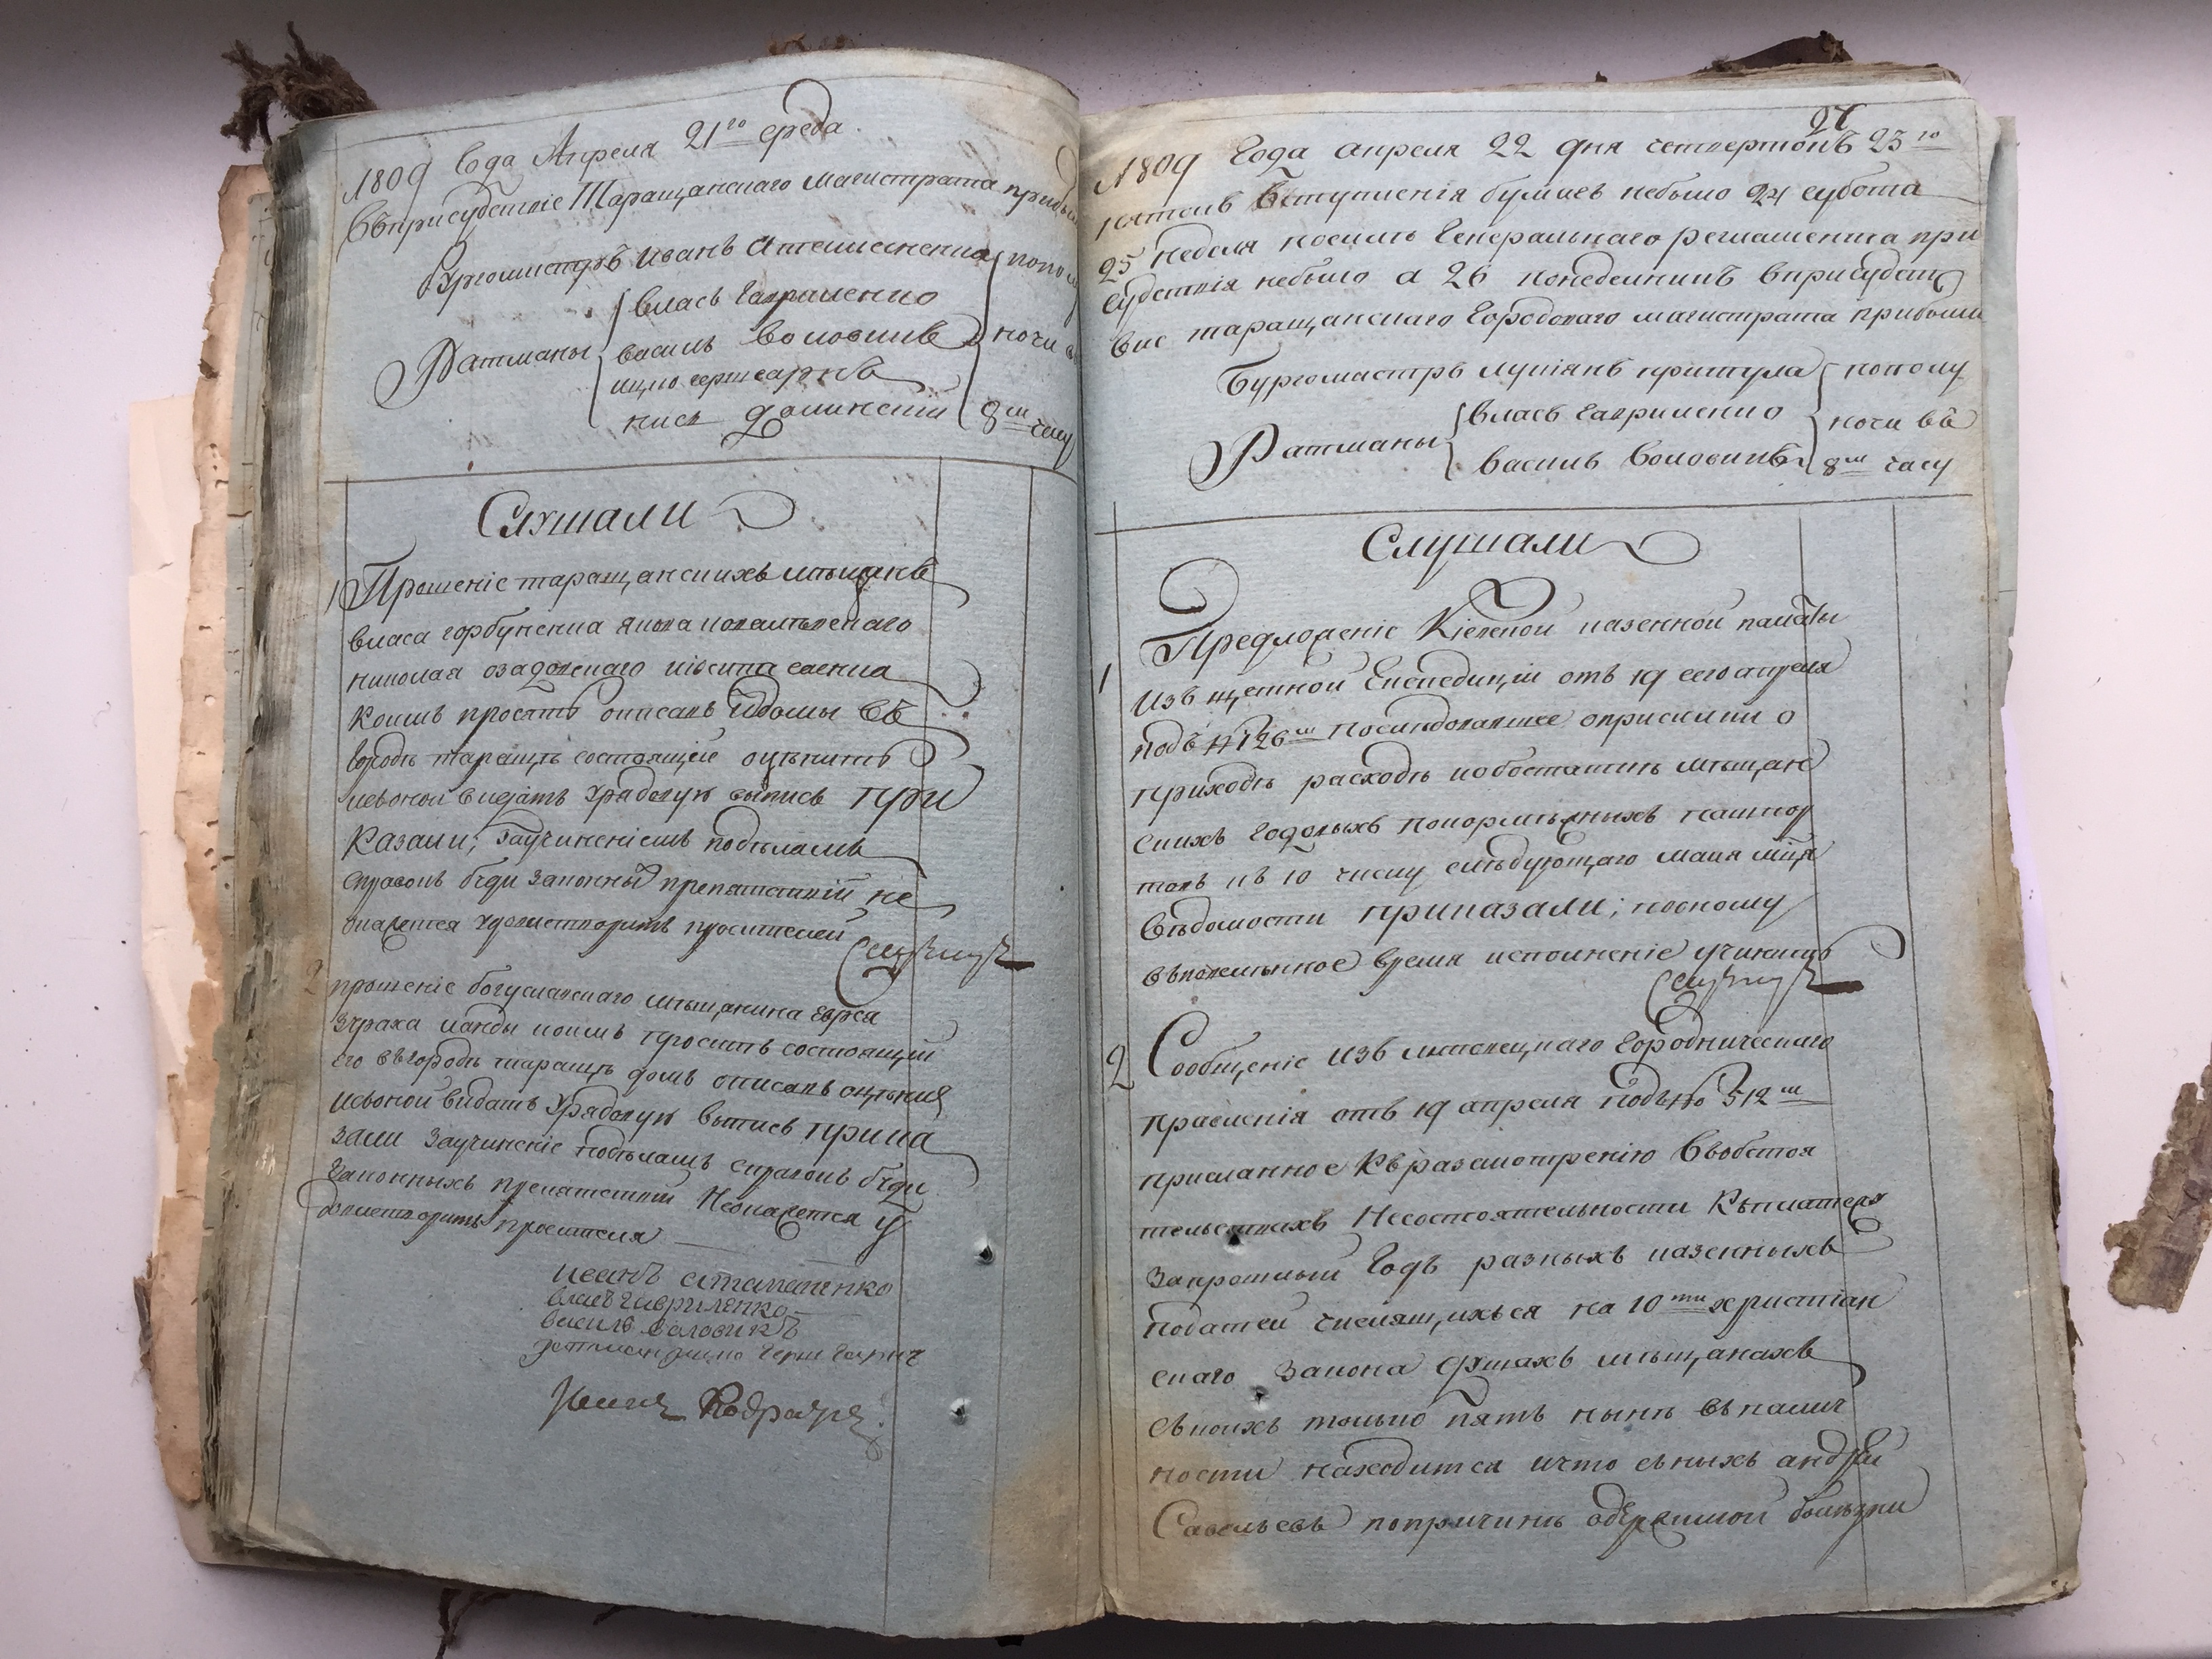 1809 Года Апреля 21го среда.
Въприсудствіе Таращанскаго магистрата прибыли
Бургомистръ Иванъ Атамоненко
Ратманы
власъ Гавриленко
василь воловикъ
ицко гершгарнъ
полу
ночи въ
8м часу
Слушали
1 Прошеніе таращанскихъ мѣщанъ
власа горбуненка якова
николая озадовскаго іосипа саенка
коимъ просятъ описавъ ихъ домы въ
городѣ таращѣ состоящіе оцѣнить
и въ оной видать урядовую выпись при
казали; Заучиненіемъ подѣламъ
справокъ буди законныхъ препятствій не
окажется удовлетворить просителей
2 прошеніе богуславскаго мѣщанина
коимъ проситъ состоящій
его въгородѣ таращѣ домъ описавъ оцѣнить
и въ оной видать Урядовую выпись прика
зали Заучиненіе подѣламъ справокъ буди
Законныхъ препятствій Неокажется у
довлетворить просителя
иванъ атаманенко
власъ гавриленко
василь воловикъ
27
1809 Года апреля 22 дня четвертокъ 23го
пятокъ вступленія бумагъ небыло 24 субота
25 неделя посилѣ Генеральнаго регламента при
судствія небыло а 26 понеделникъ вприсудст
віе таращанскаго Городоваго магистрата прибыли
Бургомистръ лукіянъ притула
Ратманы
власъ Гавриленко
василь воловикъ
пополу
ночи въ
8м часу
Слушали
1 Предложеніе Кіевской казенной палаты
Изъ щетной Експедиціи отъ 19 сего апреля
подъ № 126м Последовавшее оприсилки о
приходѣ расходѣ иобостаткѣ мѣщан
скихъ годовыхъ покормѣжныхъ пашпор
товъ къ 10 числу слѣдующаго маия мця
вѣдомости приказали; посему
въповелѣнное время исполненіе учинить
2 Сообщеніе Изъ липовецкаго Городническаго
правленія отъ 19 апреля подъ № 512м
присланное Къразсмотренію Обобстоя
тельствахъ Несостоятельности Къплатежу
Запрошлый Годъ разныхъ казенныхъ
податей числящихъся на 10ти христіан
скаго Закона душахъ мѣщанахъ
съкоихъ только пять нынѣ въналич
ности находится ичто сънихъ андрей
Савельевъ попричинѣ одержимой болѣзни